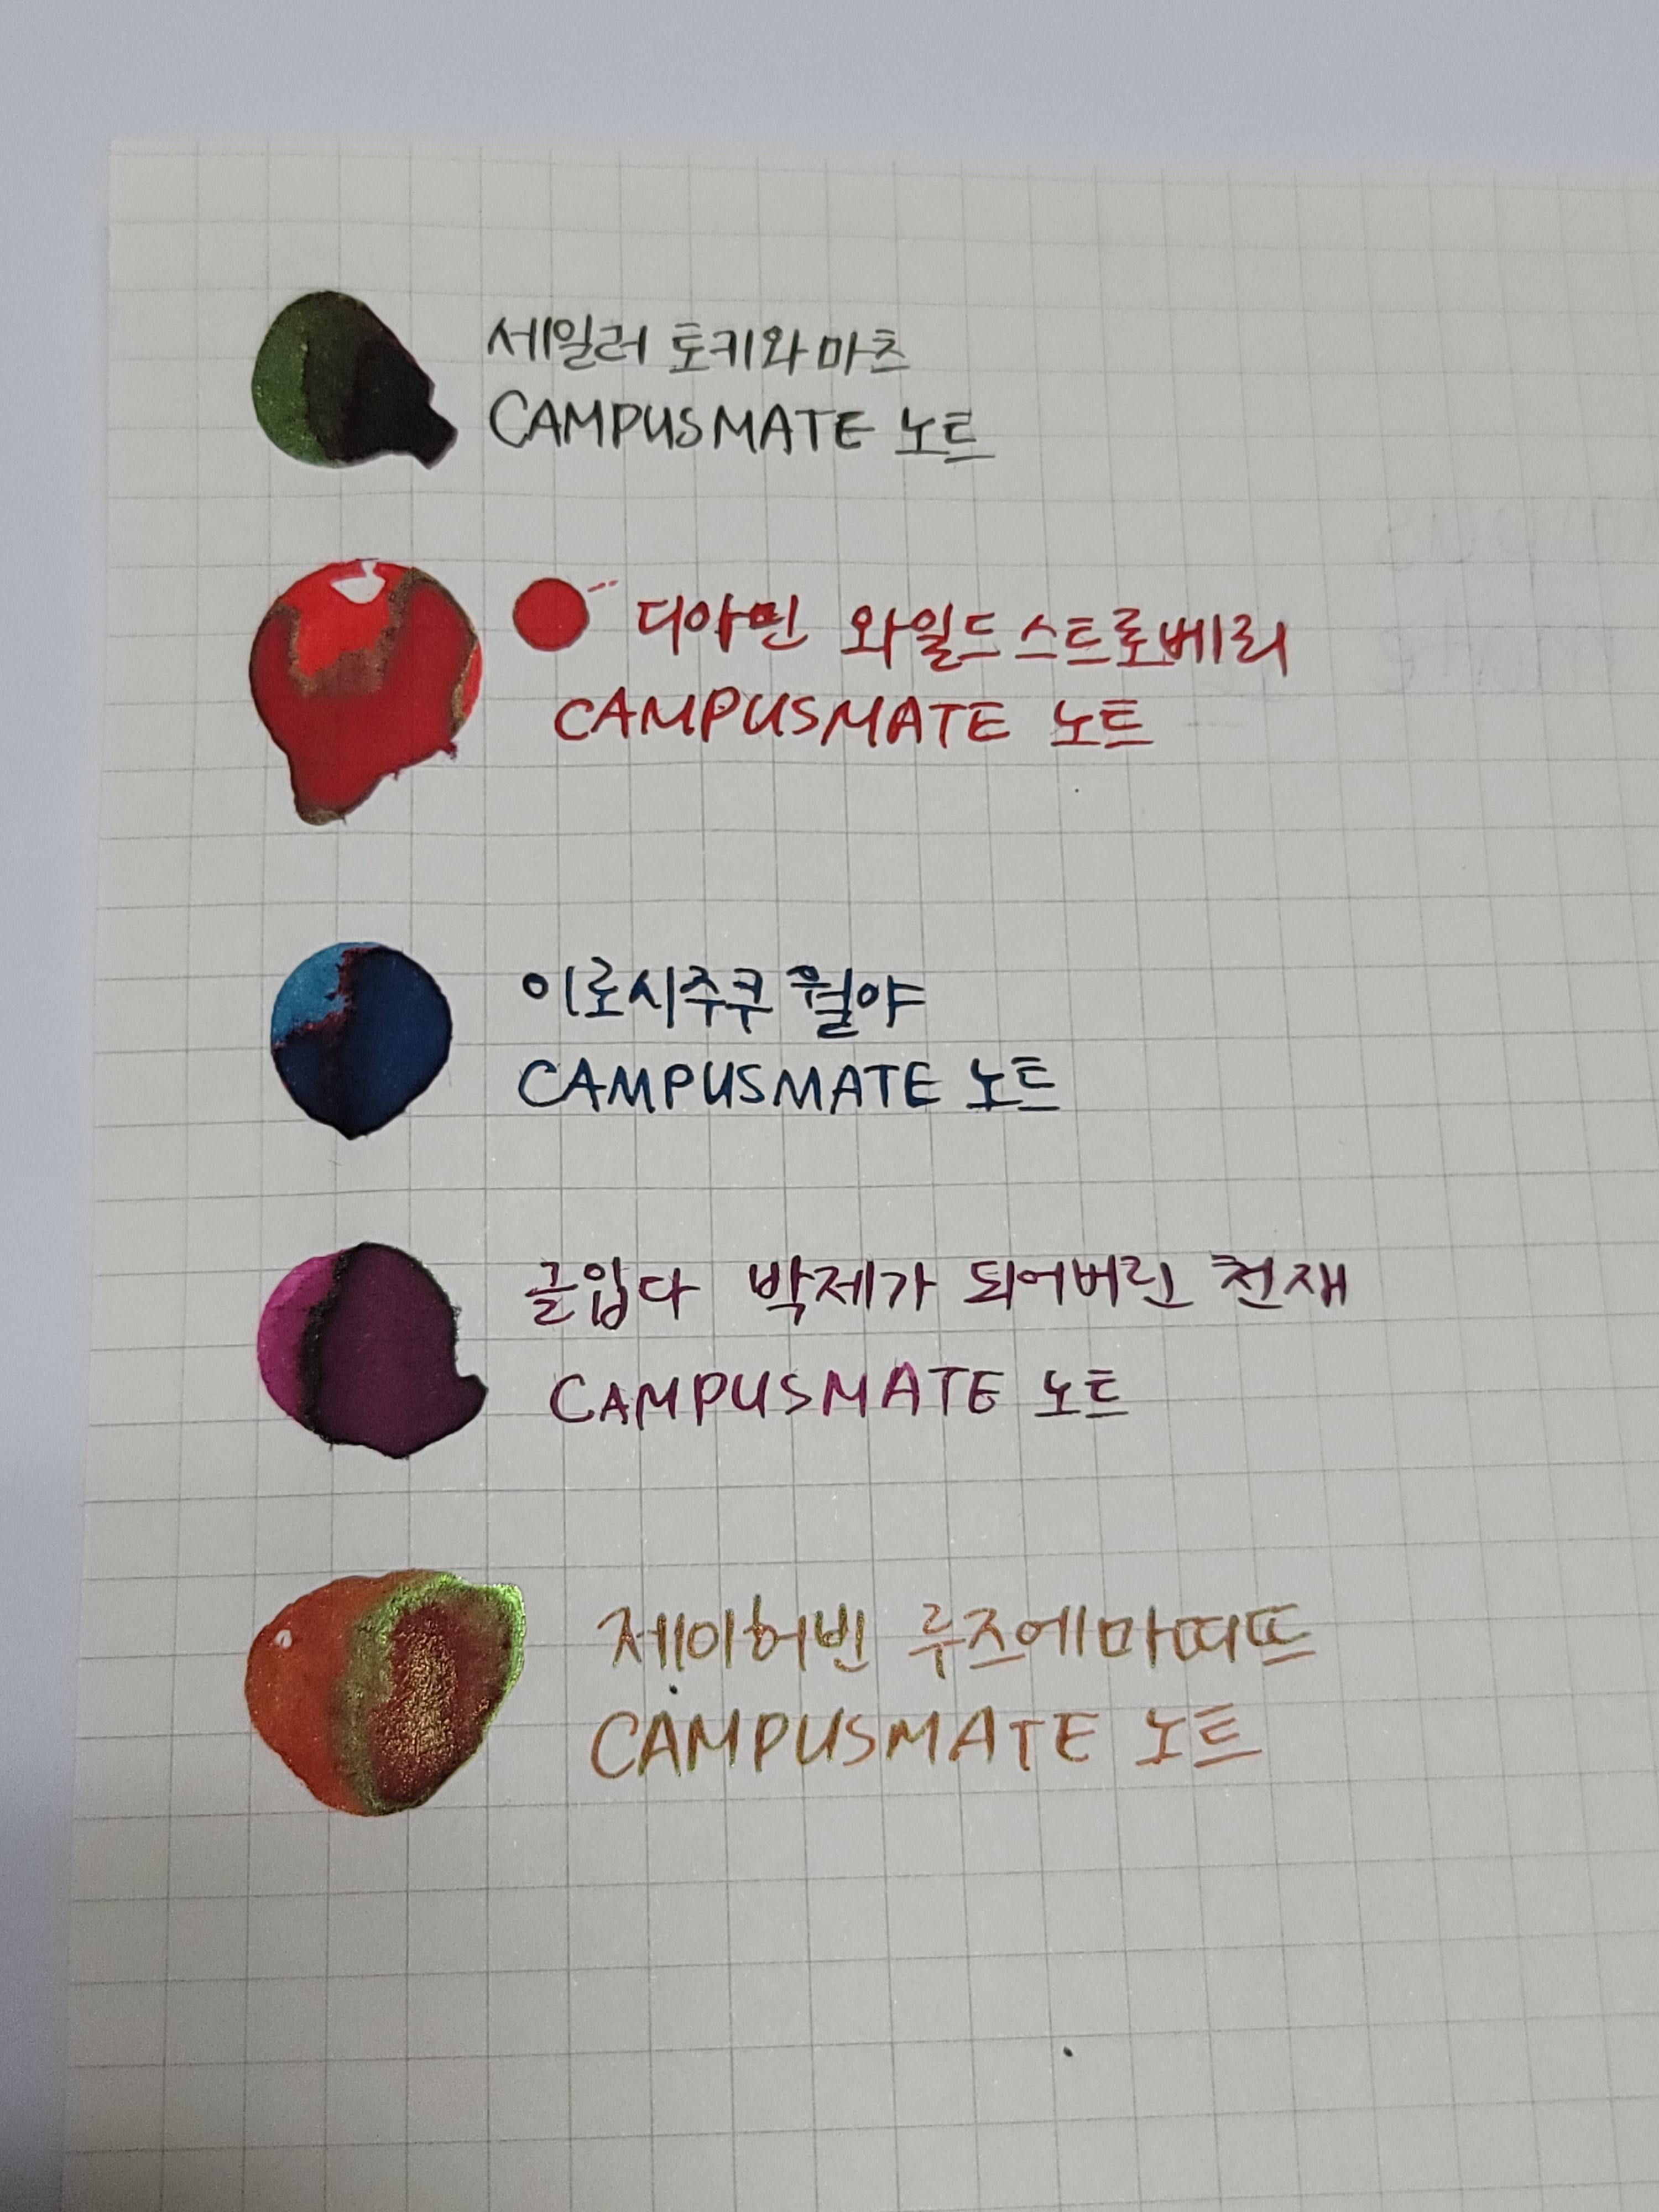 세일러 토키와마츠
CAMPUSMATE 노트
디아민 와일드스트로베리
CAMPUSMATE 노트
이로시주쿠 월야
CAMPUSMATE 노트
글입다 박제가 되어버린 천재
CAMPUSMATE 노트
제이허빈 루즈에마띠뜨
CAMPUSMATE 노트